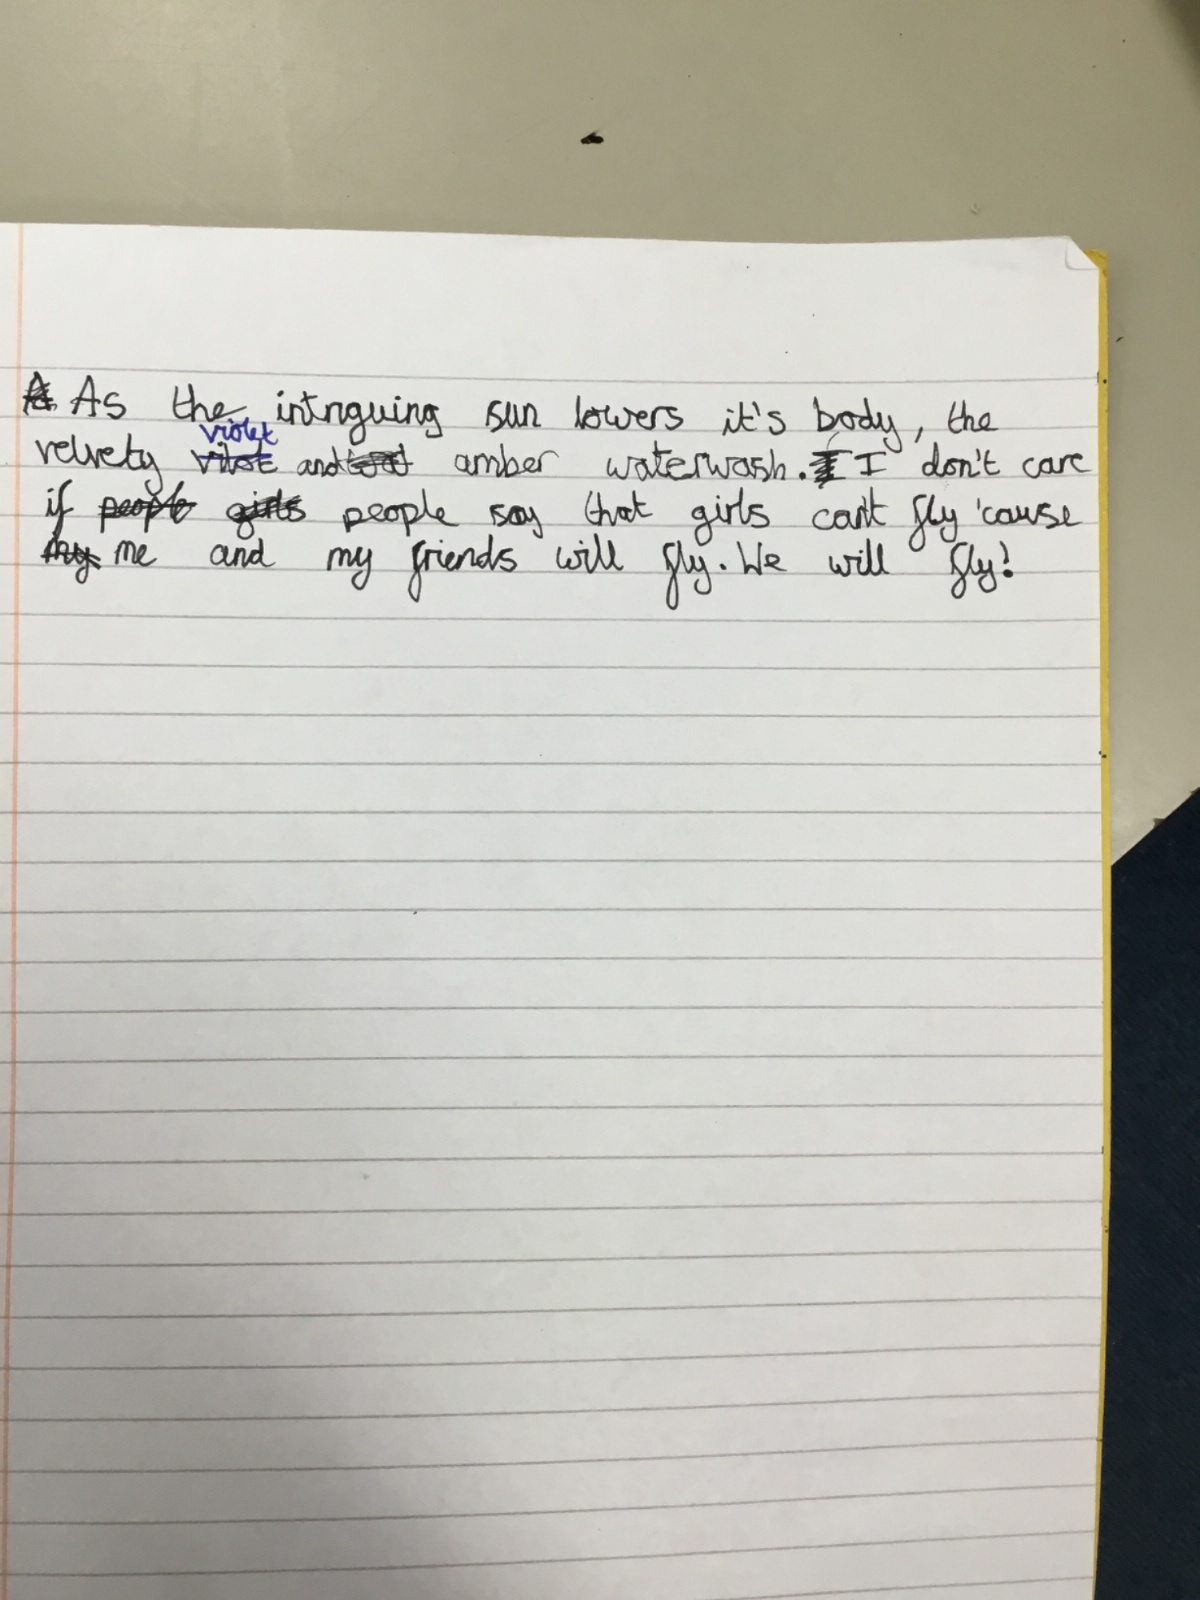 As the intriguing sun lowers it's body, the
violet
velvety vilot and amber waterwash. I don't care
if people girls people say that girls can't fly 'cause
my me and my friends will fly. We will fly!